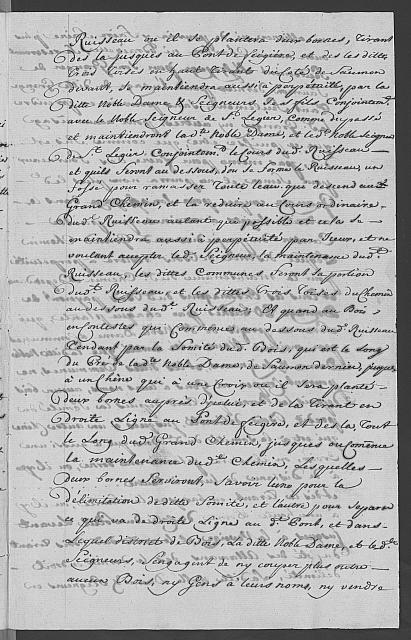 Ruisseau ou il se plantera deux bornes, tirant
des la jusques au Pont de et des dittes
trois toises en haut tirant du Coté de Saumon
devant, se maintiendra aussi à perpétuité, par la
ditte Noble Dame & Seigneurs ses fils Conjointem.
avec le Noble Seigneur de St. Legier, Comme du passé
et maintiendront la de. Noble Dame, et led. Noble Seigne
de St. Legier Conjointem.t le Cours dud. Ruisseau
et quils feront au dessous, d'ou se forme le Ruisseau, un
fossé pour ramasser toute l'eau, qui descend au dt
Grand Chemin, et la reduire au Cours ordinaire
dud. Ruisseau autant que possible et cela se
maintiendra aussi à perpétuité par Iceux, et ne
voulant accepter led. Seigneur, la maintenance du dt
Ruisseau, les dittes Communes feront sa portion
dudt. Ruisseau, et les dittes trois toises du Chemin
au dessous du dt. Ruisseau; Et quand au Bois
en Conteste qui Commence au dessous du dt. Ruisseau
tendant par la Somité du dt. Bois, qui est le long
du Pré de la de. Noble Dame, de Saumon derrier, jusques
à un Chêne qui à une Croix ou il sera planté
deux bornes auprès d'icelui, et de la tirant en
droite Ligne au Pont de et des la Tout
le Long dud. Grand Chemin, jusques ou Comence
la maintenance du dt. Chemin, Lesquelles
deux bornes Serviront, Savoir l'une pour la
délimitation de ditte Somité, et lautre pour Separer
ce qui va de droite Ligne au dt. Pont, et dans
Lequel discret de Bois, La ditte Noble Dame, et le dt.
Seigneurs, S'engagent de ny couper plus outre
aucun Bois, ny Gens à leurs noms, ny vendre